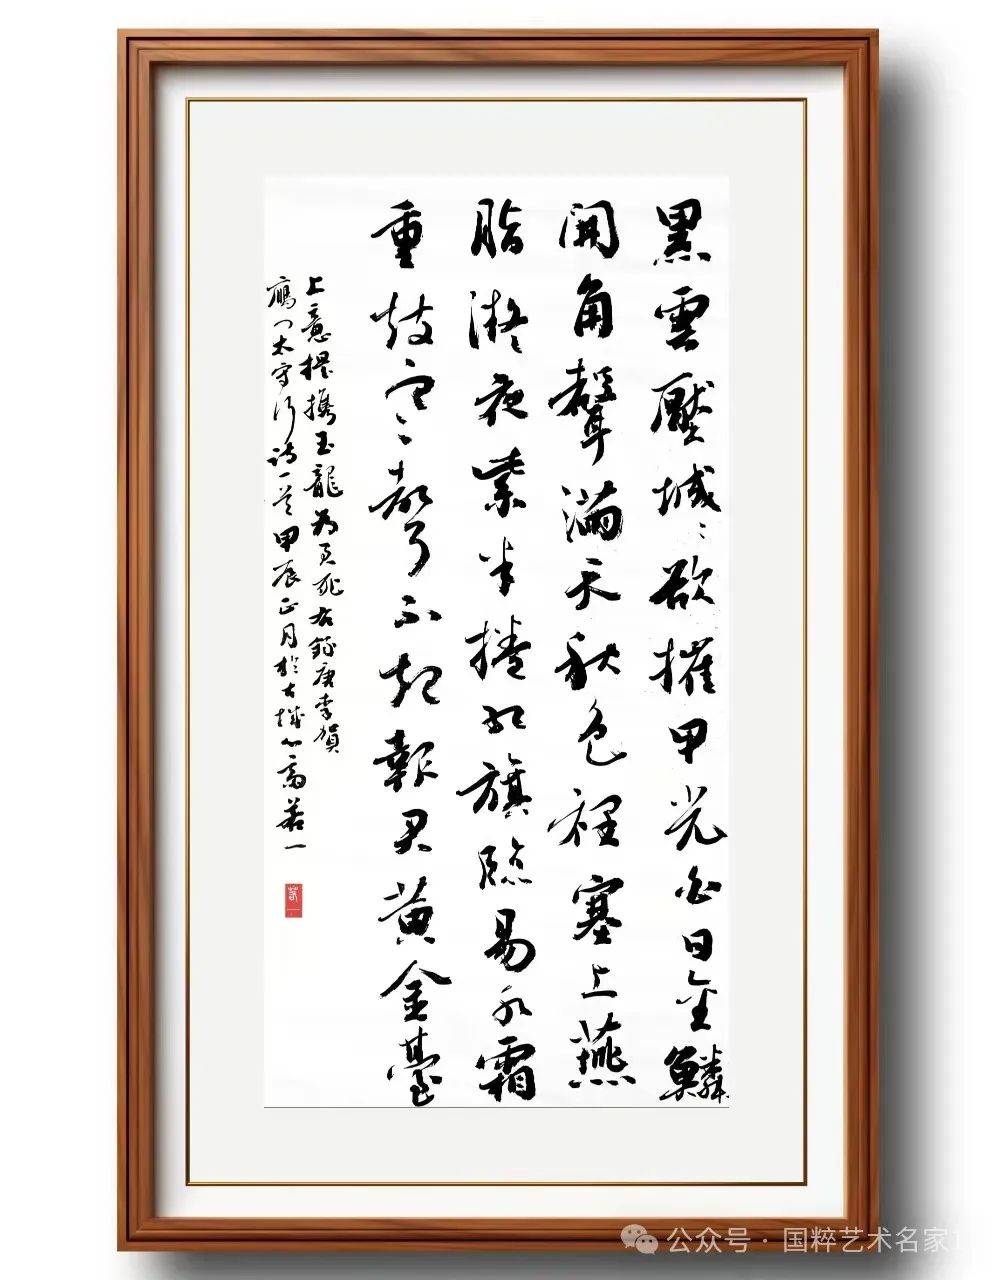 黑雲壓城〻欲摧甲光向日金鱗
開角聲滿天秋色裡塞上燕
脂凝夜紫半捲紅旗臨易水霜
重鼓寒〻聲不起報君黃金臺
上意提攜玉龍為君死右錄唐李賀
鴈門太守行詩一首甲辰正月於古城心齋若一
若一
公众号 · 国粹艺术名家1